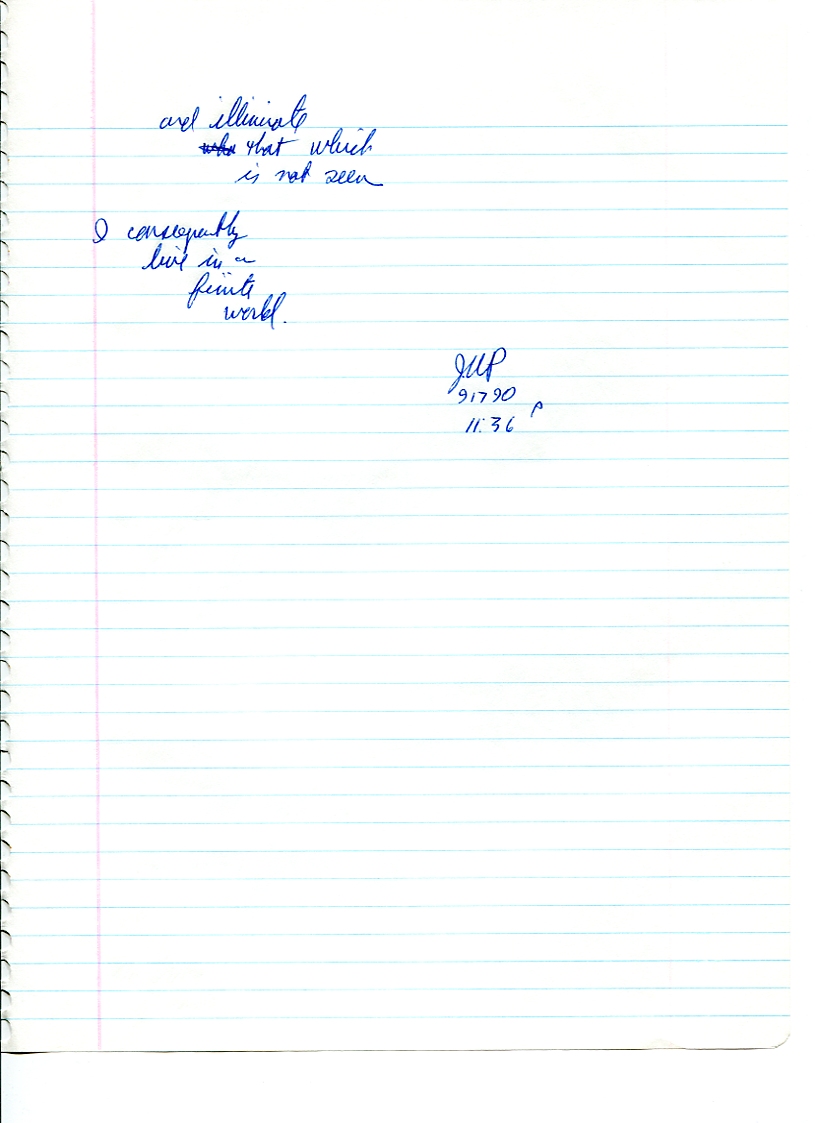 and illiminate
that which
is not seen
I consequently
live in a
finite
world.
91790
11:36 P